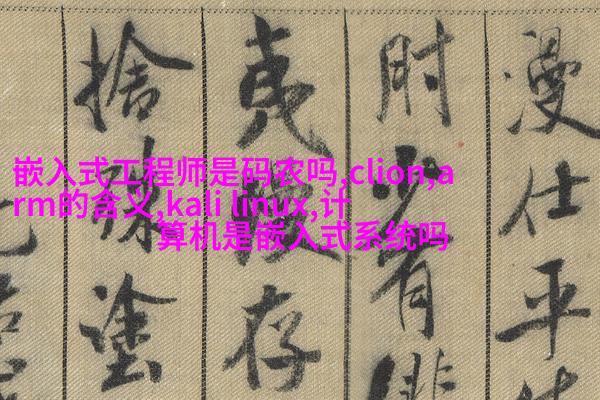 嵌入式工程师是码农吗,clion,a
rm的含义,kali linux,计
算机是嵌入式系统吗
漫仕平
少有
夷存
捨殊塗